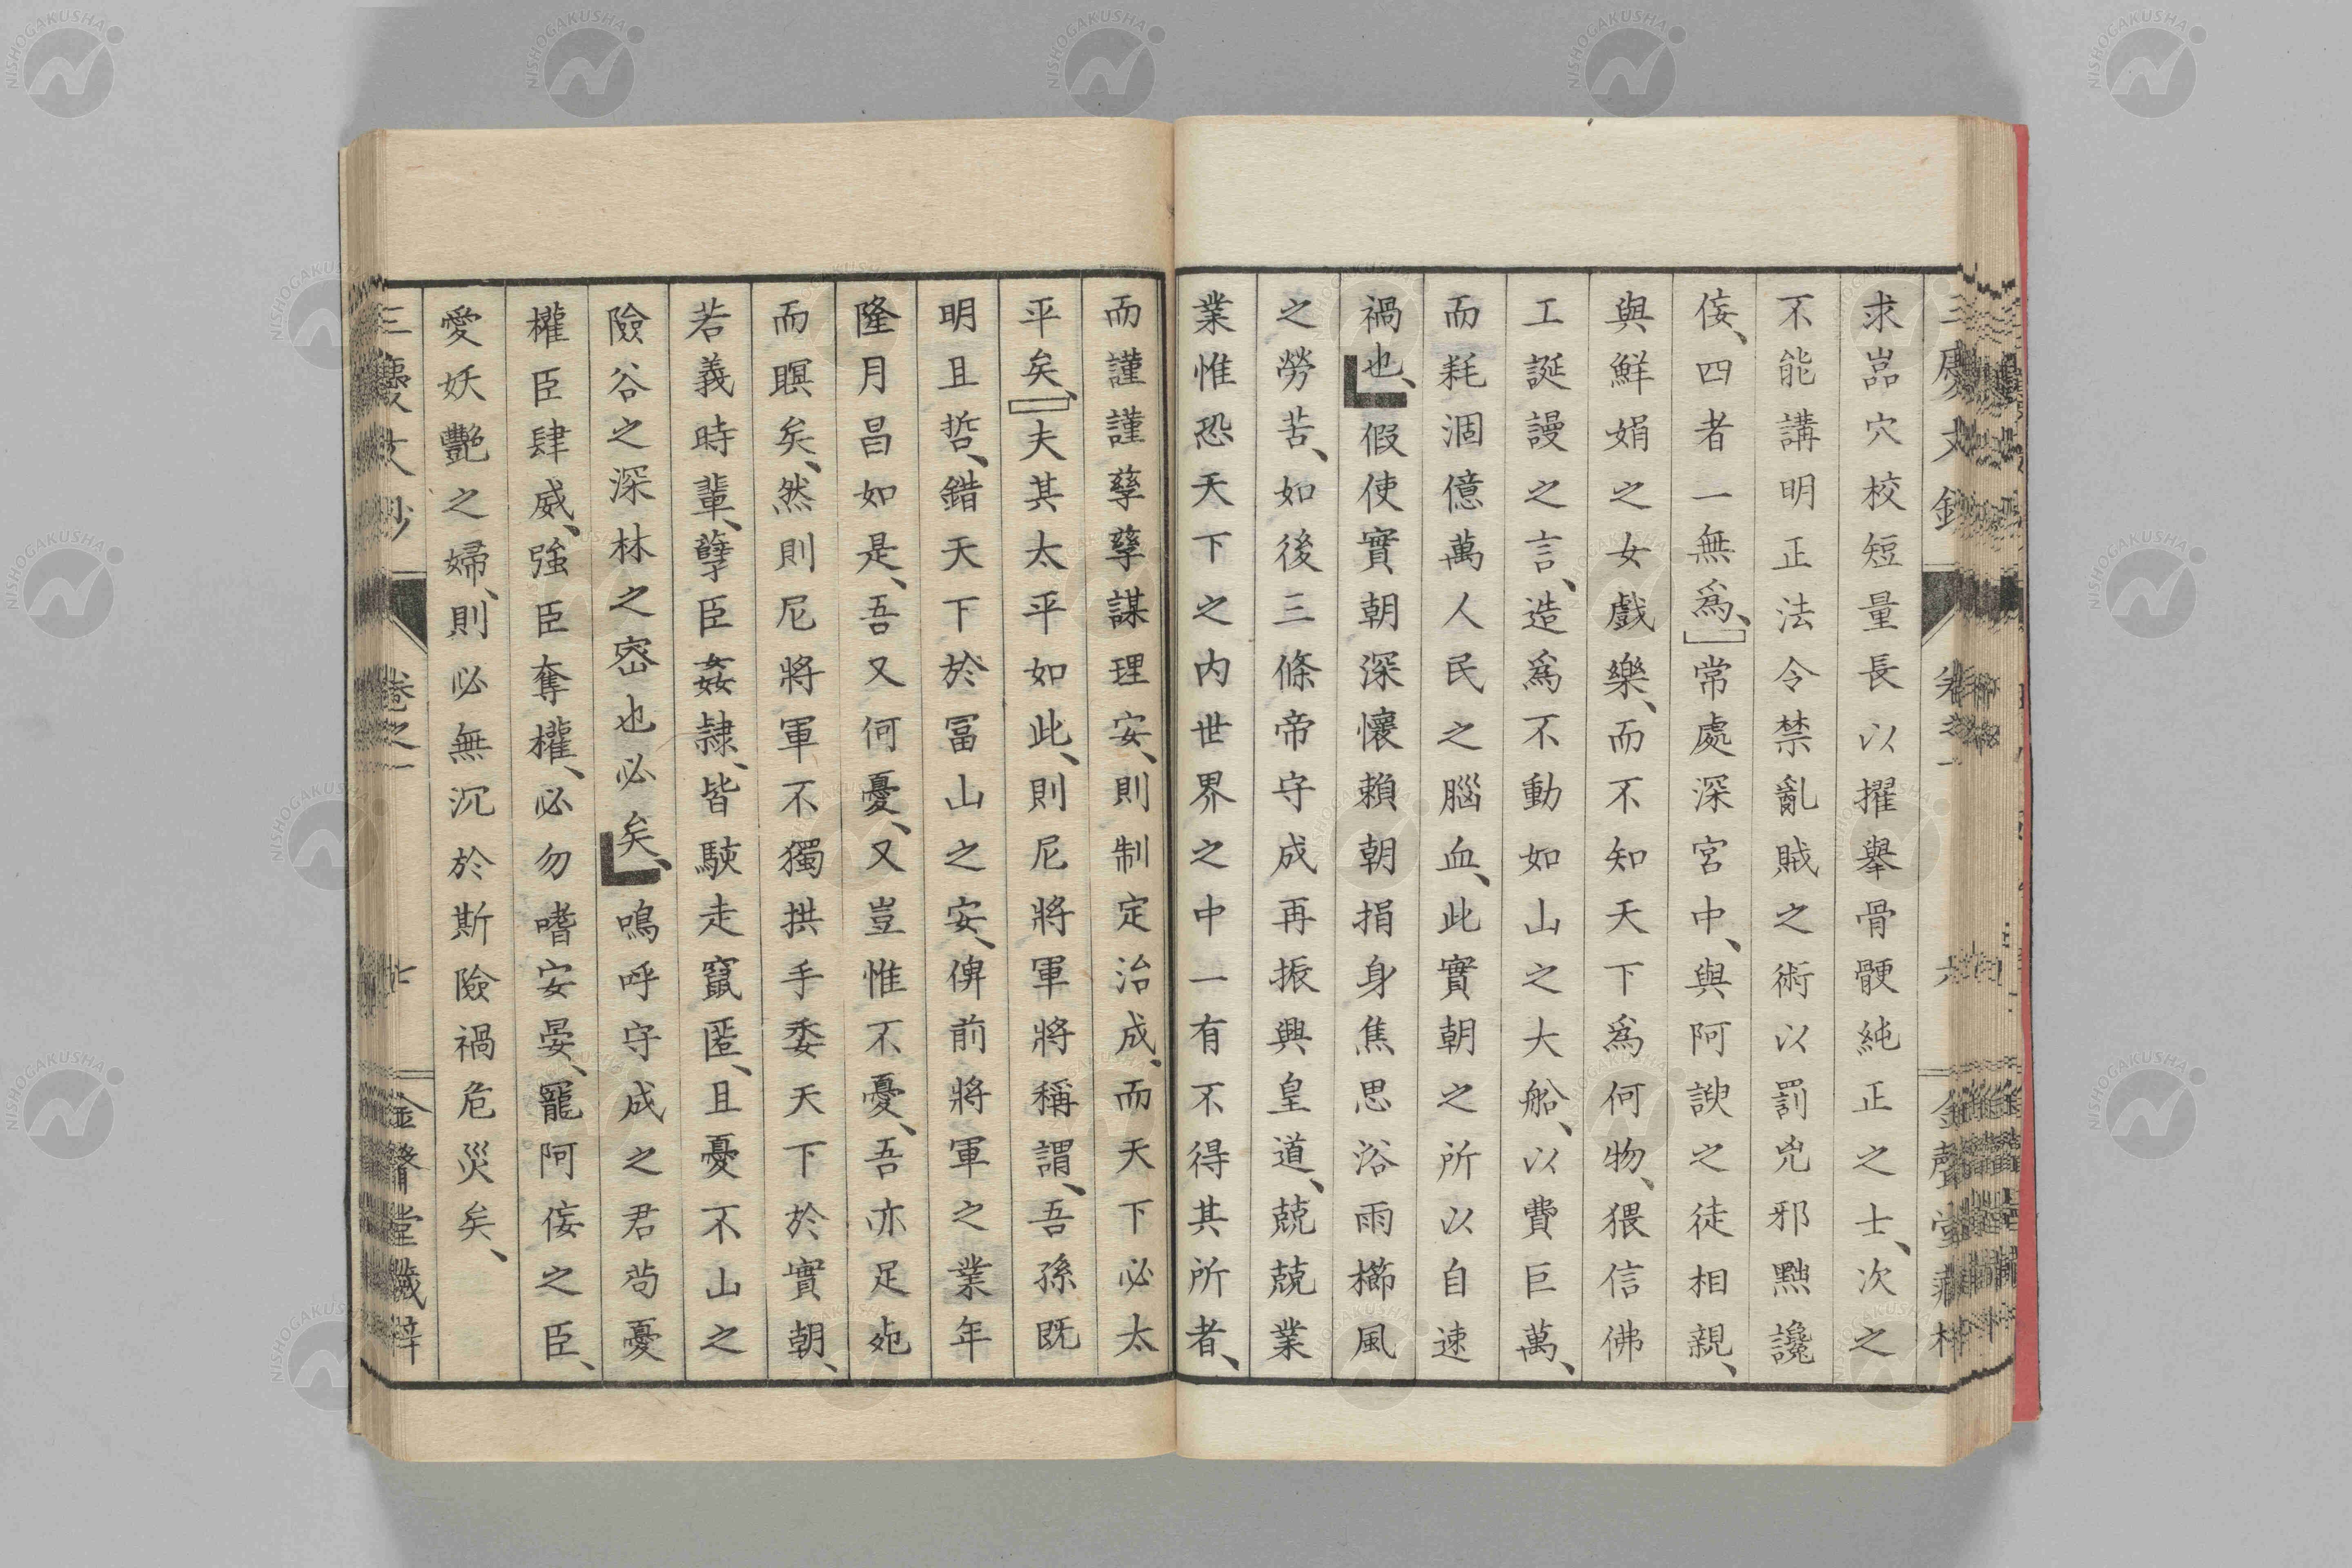 求嵓穴校短量長以擢舉骨骾純正之士、次之
不能講明正法令禁亂賊之術以罰兇邪黠讒
侫、四者一無爲、常處深宮中、與阿諛之徒相親、
與鮮娟之女戲樂、而不知天下爲何物、猥信佛
工誕謾之言、造爲不動如山之大船、以費巨萬、
而耗涸億萬人民之腦血、此實朝之所以自速
禍也、假使實朝深懷賴朝捐身焦思浴雨櫛風
之勞苦、如後三條帝守成再振興皇道、兢兢業
業惟恐天下之内世界之中一有不得其所者、
而謹謹孳孳謀理安、則制定治成、而天下必太
平矣、夫其太平如此、則尼將軍將稱謂、吾孫既
明且哲、錯天下於冨山之安、俾前將軍之業年
隆月昌如是、吾又何憂、又豈惟不憂、吾亦足死
而瞑矣、然則尼將軍不獨拱手委天下於實朝、
若義時輩、孽臣姦隷、皆駛走竄匿、且憂不山之
險谷之深林之宻也必矣、嗚呼守成之君苟憂
權臣肆威、強臣奪權、必勿嗜安晏、寵阿侫之臣、
愛妖艷之婦、則必無沉於斯險禍危災矣、
三慶文鈔 卷之一 七 金聲堂藏梓